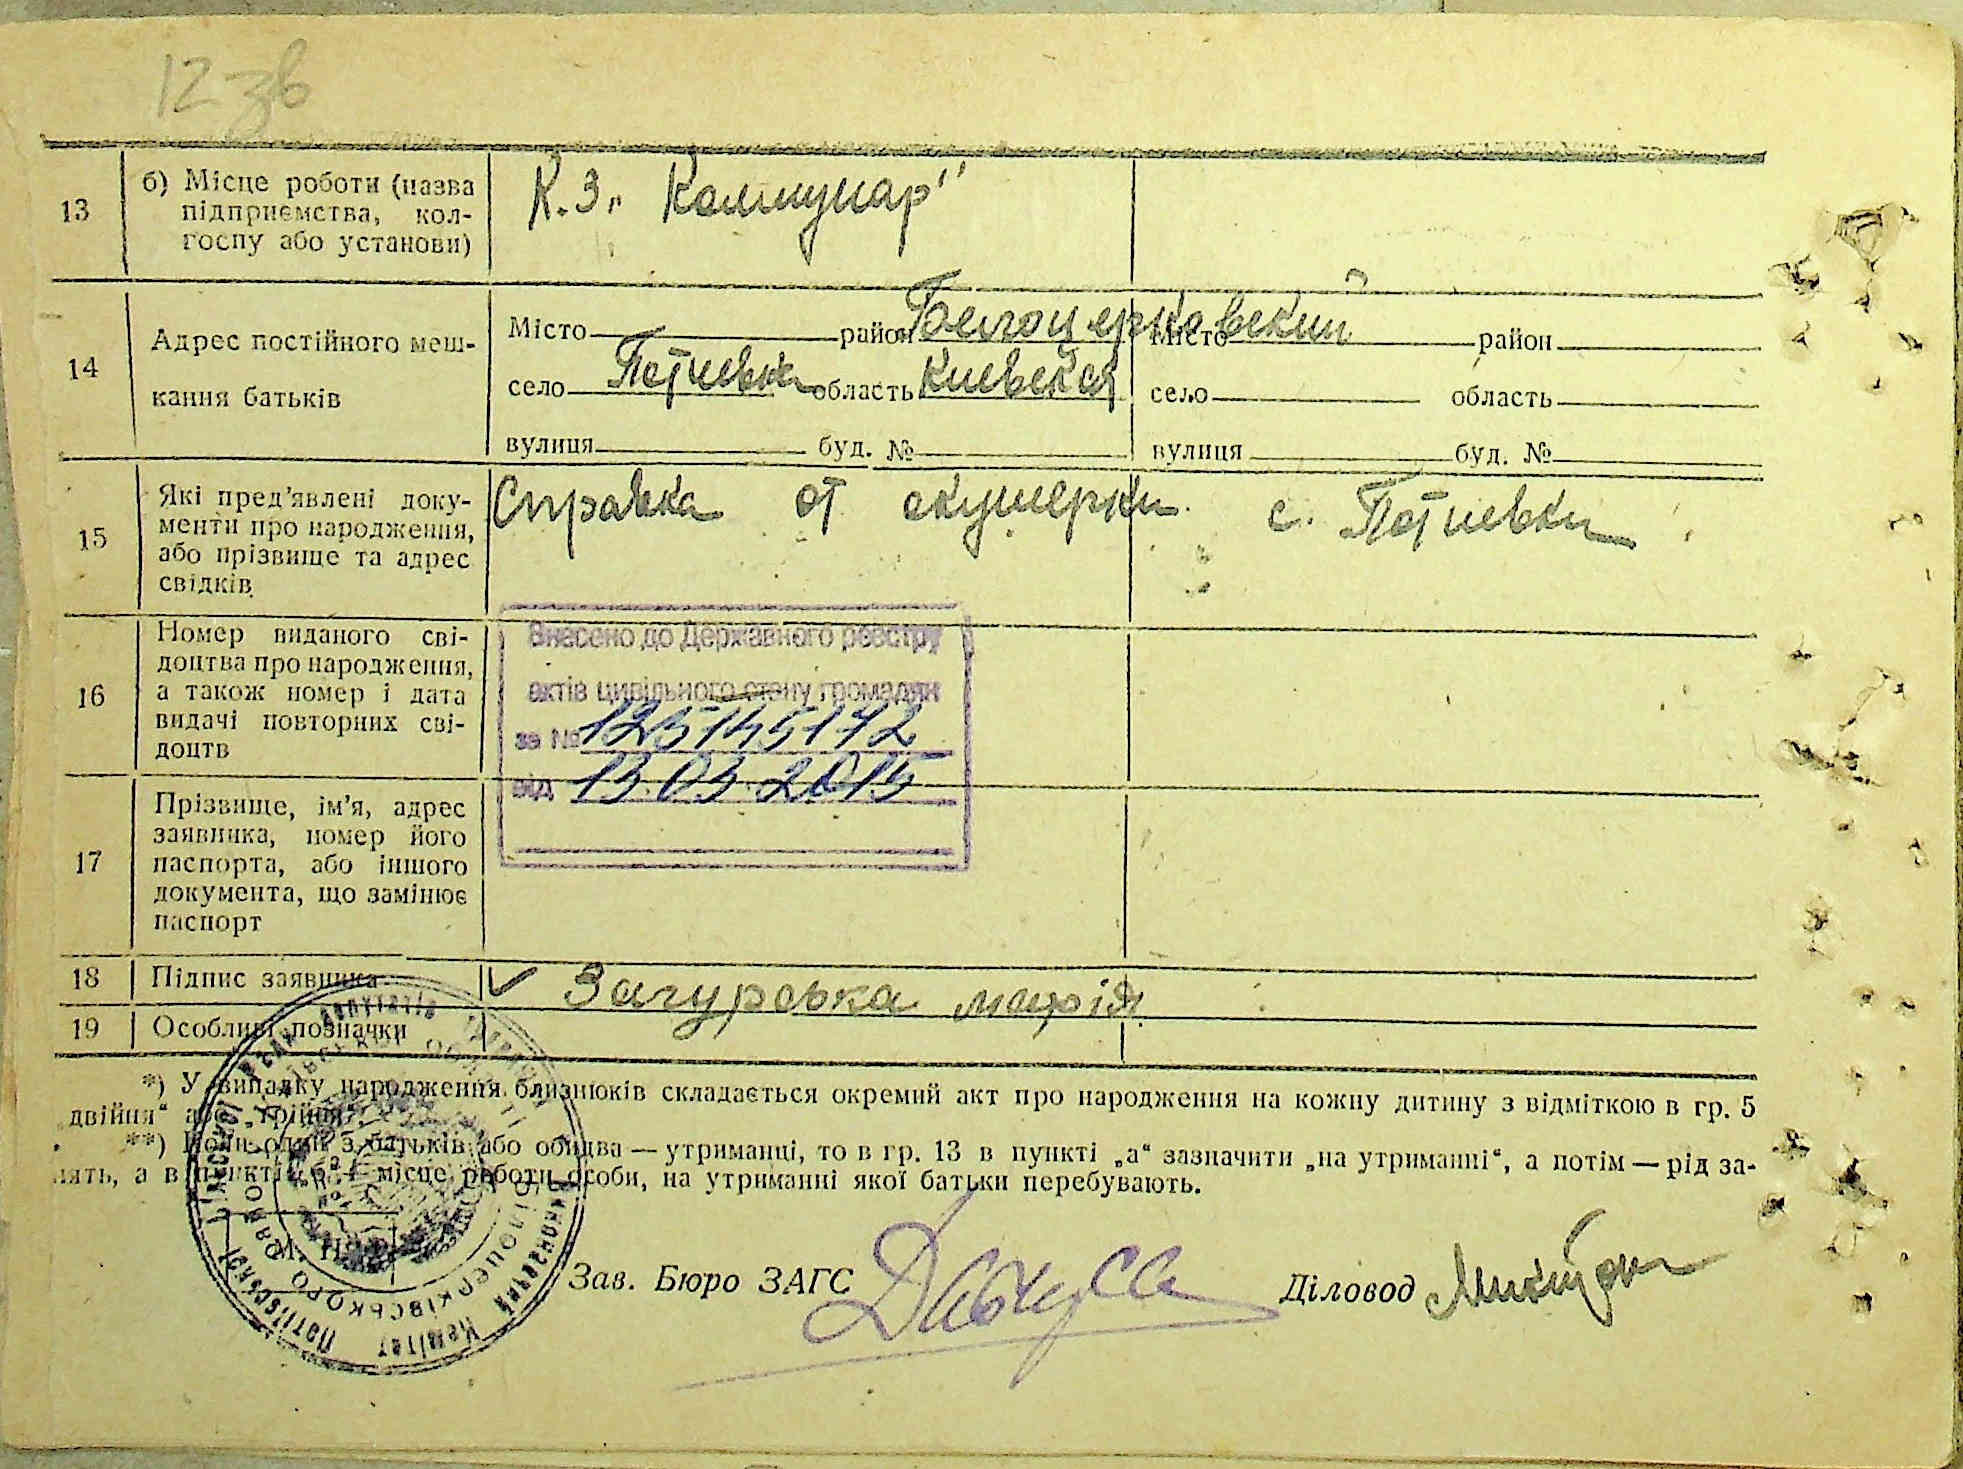 12 зв
13
б) Місце роботи (назва
підприємства, кол-
госпу або установи)
К.З. „Коммунар"
14
Адрес постійного меш-
кання батьків
Місто район Белоцерковский
село Потиевка область Киевская
вулиця буд. №
Місто район
село область
вулиця буд. №
15
Які пред'явлені доку-
менти про народження,
або прізвище та адрес
свідків
Справка от акушерки с. Потиевки
16
Номер виданого сві-
доцтва про народження,
а також номер і дата
видачі повторних сві-
доцтв
Внесено до Державного реєстру
актів цивільного стану громадян
за № 125145172
від 13.03.2015
17
Прізвище, ім'я, адрес
заявника, номер його
паспорта, або іншого
документа, що замінює
паспорт
18 Підпис заявника
Загурська марія
19 Особливі позначки
*) У випадку народження близнюків складається окремий акт про народження на кожну дитину з відміткою в гр. 5
двійня" або „трійня".
**) Коли один з батьків або обидва — утриманці, то в гр. 13 в пункті „а" зазначити „на утриманні", а потім — рід за-
нять, а в пункті „б" — місце роботи особи, на утриманні якої батьки перебувають.
М. П.
Зав. Бюро ЗАГС
Діловод